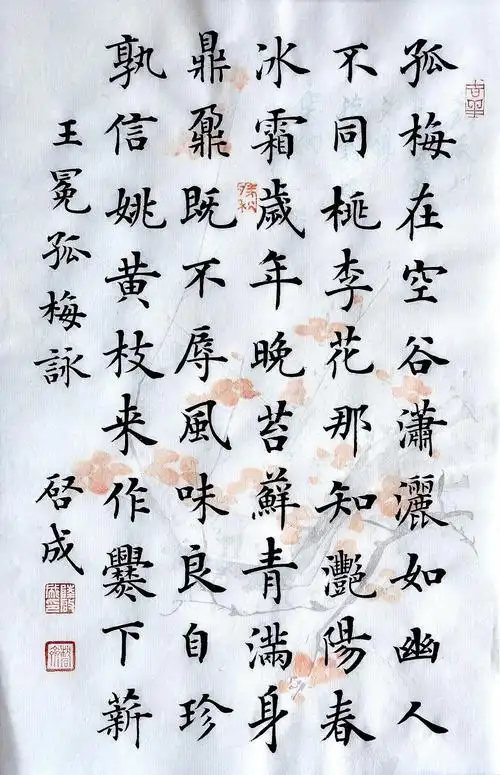 孤梅在空谷瀟灑如幽人
不同桃李花那知灧陽春
冰霜歲年晚苔蘚青滿身
鼎鼐既不辱風味良自珍
孰信姚黄枝来作爨下薪
王冕孤梅詠 啓成